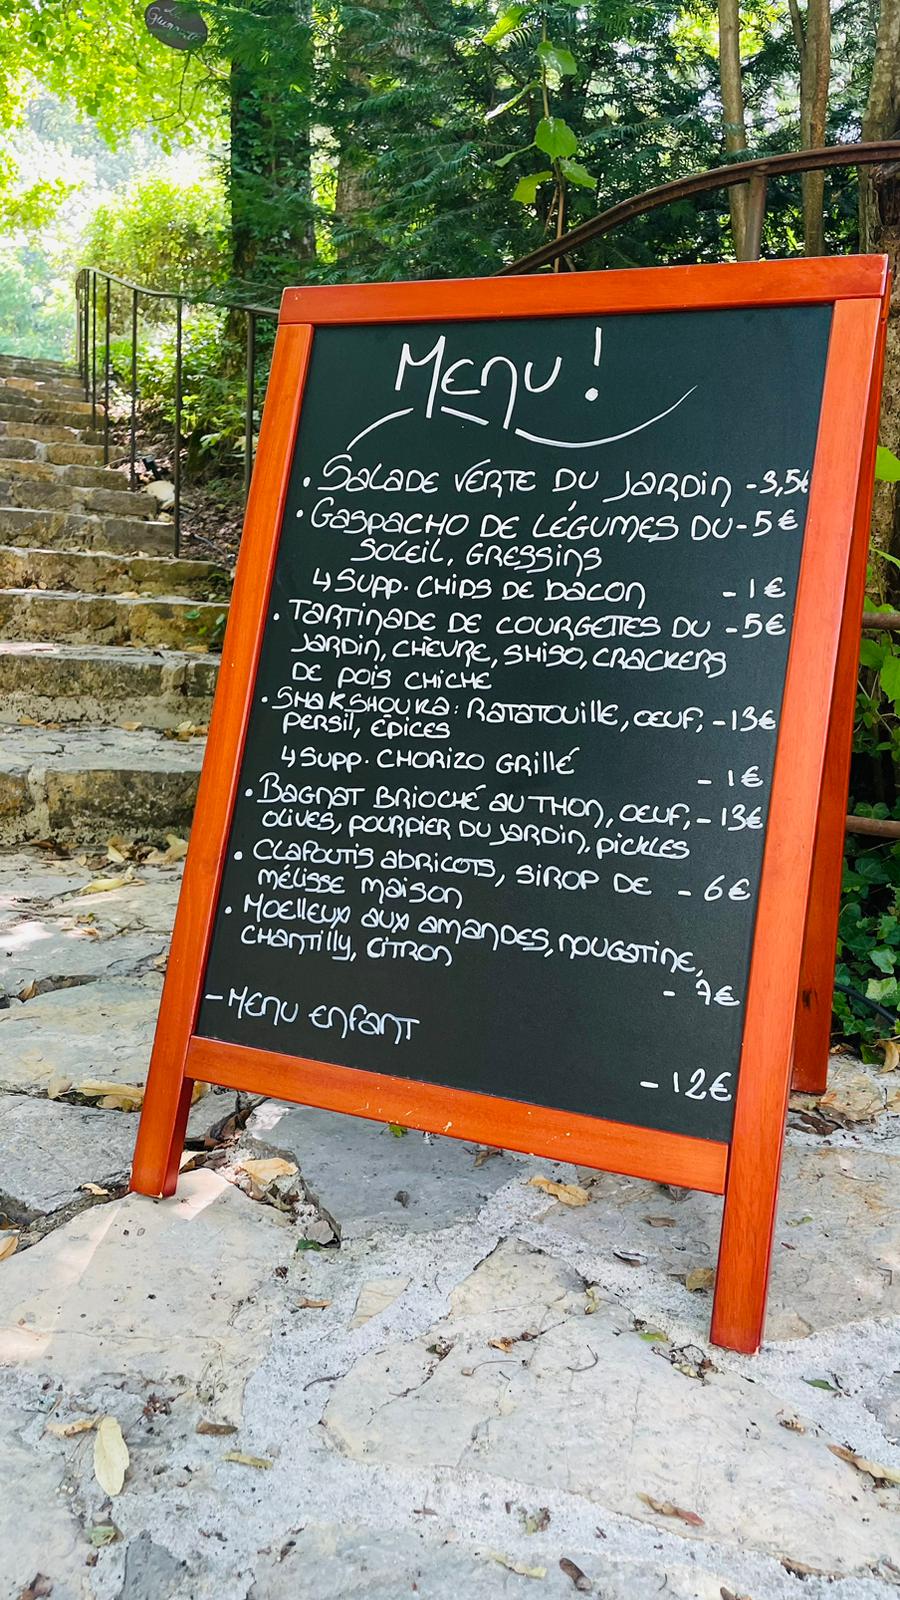 Menu !
• Salade verte du jardin - 3,5€
• Gaspacho de légumes du - 5€
soleil, gressins
↳ Supp. chips de bacon - 1€
• Tartinade de courgettes du - 5€
jardin, chèvre, shiso, crackers
de pois chiche
• Shakshouka : Ratatouille, oeuf, - 13€
persil, épices
↳ Supp. chorizo grillé - 1€
• Bagnat brioché au thon, oeuf, - 13€
olives, pourpier du jardin, pickles
• Clafoutis abricots, sirop de - 6€
mélisse maison
• Moelleux aux amandes, nougatine,
chantilly, citron - 7€
- Menu enfant
- 12€